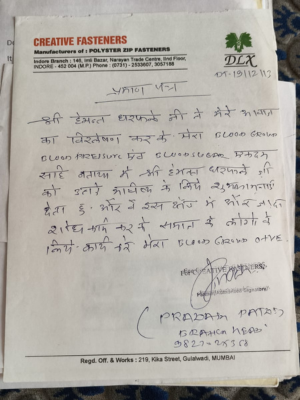 CREATIVE FASTENERS
Manufacturers of : POLYSTER ZIP FASTENERS
Indore Branch : 140, Imli Bazar, Narayan Trade Centre, IInd Floor,
INDORE - 452 004 (M.P.) Phone : (0731) - 2533607, 3057188
DLX
प्रमाण पत्र
श्री हेमन्त जी ने मेरे
का विश्लेषण कर के मेरा BLOOD GROUP
BLOOD PRESSURE एवं BLOOD SUGAR एकदम
सही बताया में श्री हेमन्त जी
को इनके भविष्य के लिये शुभकामनाएं
देता हुं और वे इस क्षेत्र में और
शोध कार्य कर के समाज के लोगो के
लिये कार्य करे मेरा BLOOD GROUP O+VE.
(PRADEEP
BRANCH HEAD
Regd. Off. & Works : 219, Kika Street, Gulalwadi, MUMBAI